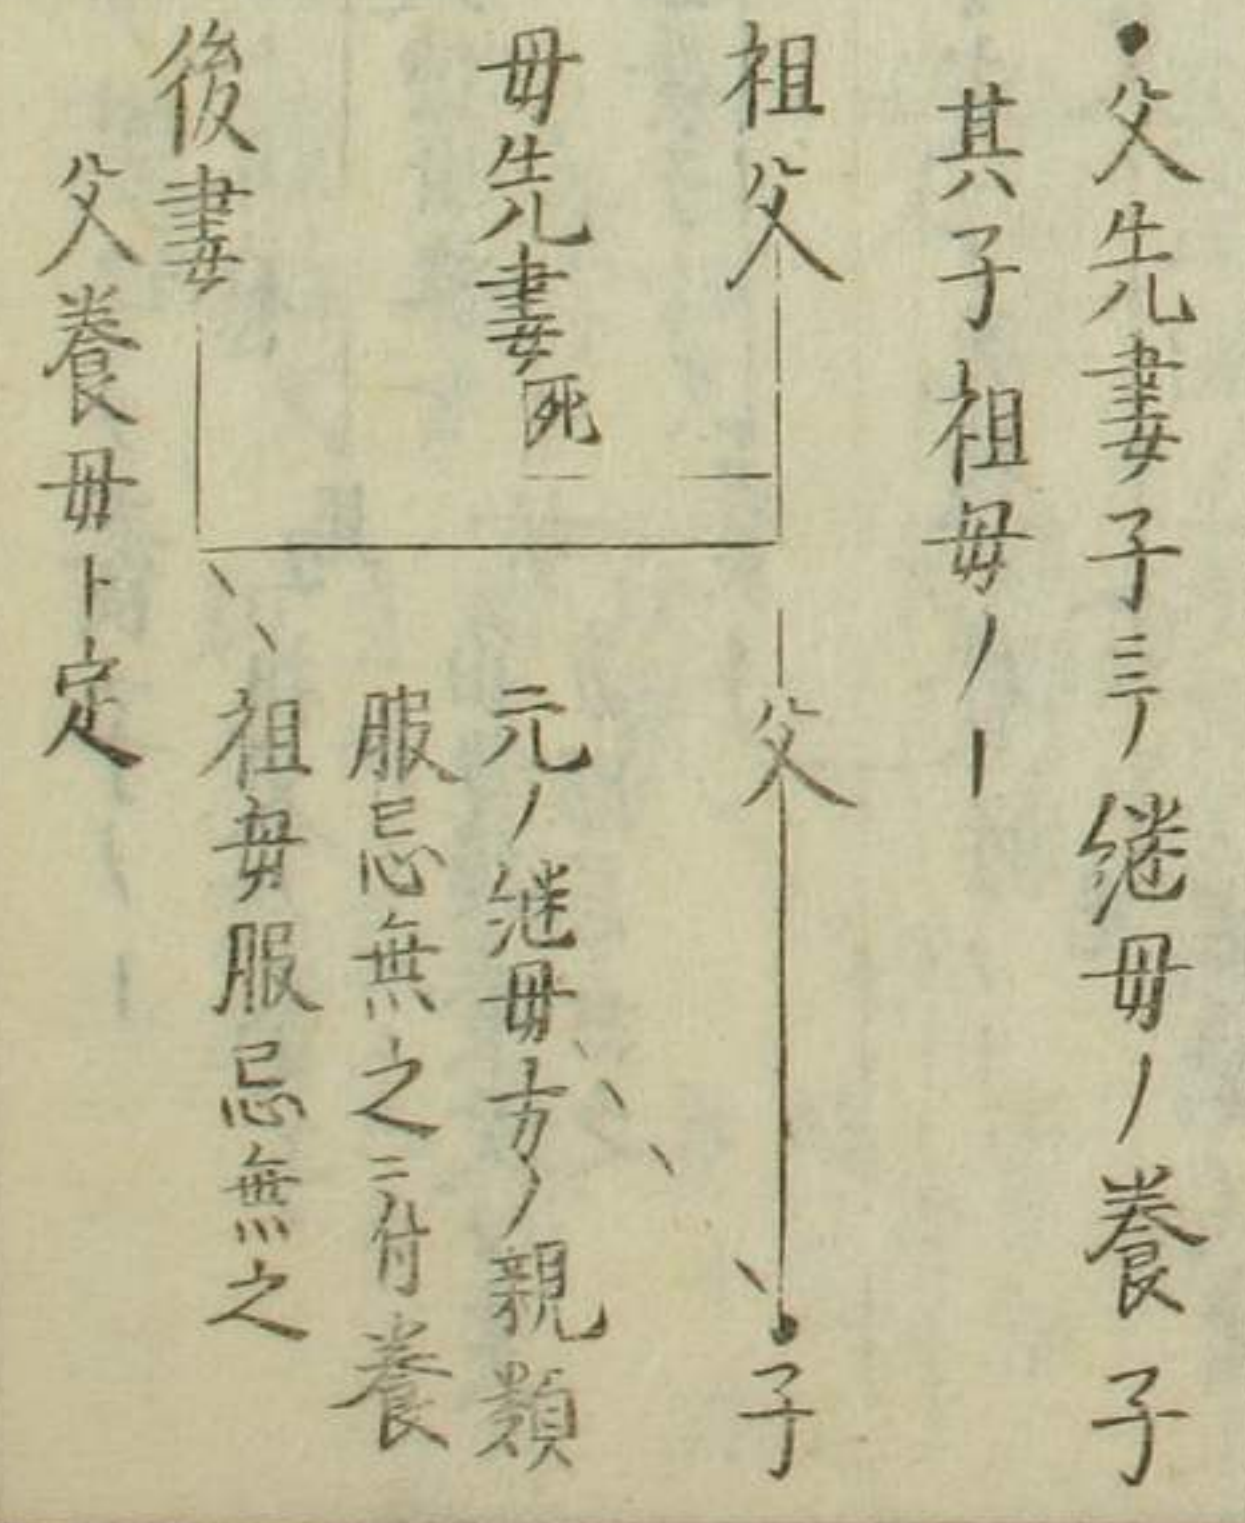 父先妻子ニテ継母ノ養子
其子祖母ノ
祖父
父
子
母先妻死
元ノ継母方ノ親類
服忌無之ニ付養
祖母服忌無之
後妻
父養母ト定